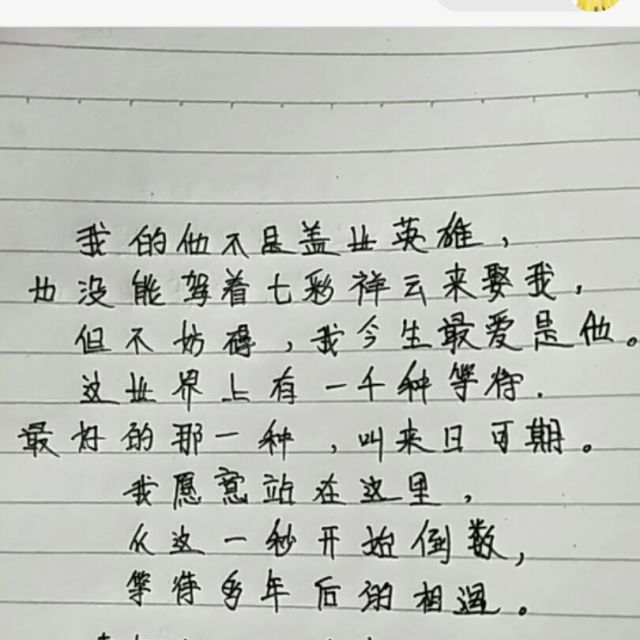 我的他不是盖世英雄，
也没能驾着七彩祥云来娶我，
但不妨碍，我今生最爱是他。
这世界上有一千种等待.
最好的那一种，叫来日可期。
我愿意站在这里，
从这一秒开始倒数，
等待多年后的相遇。